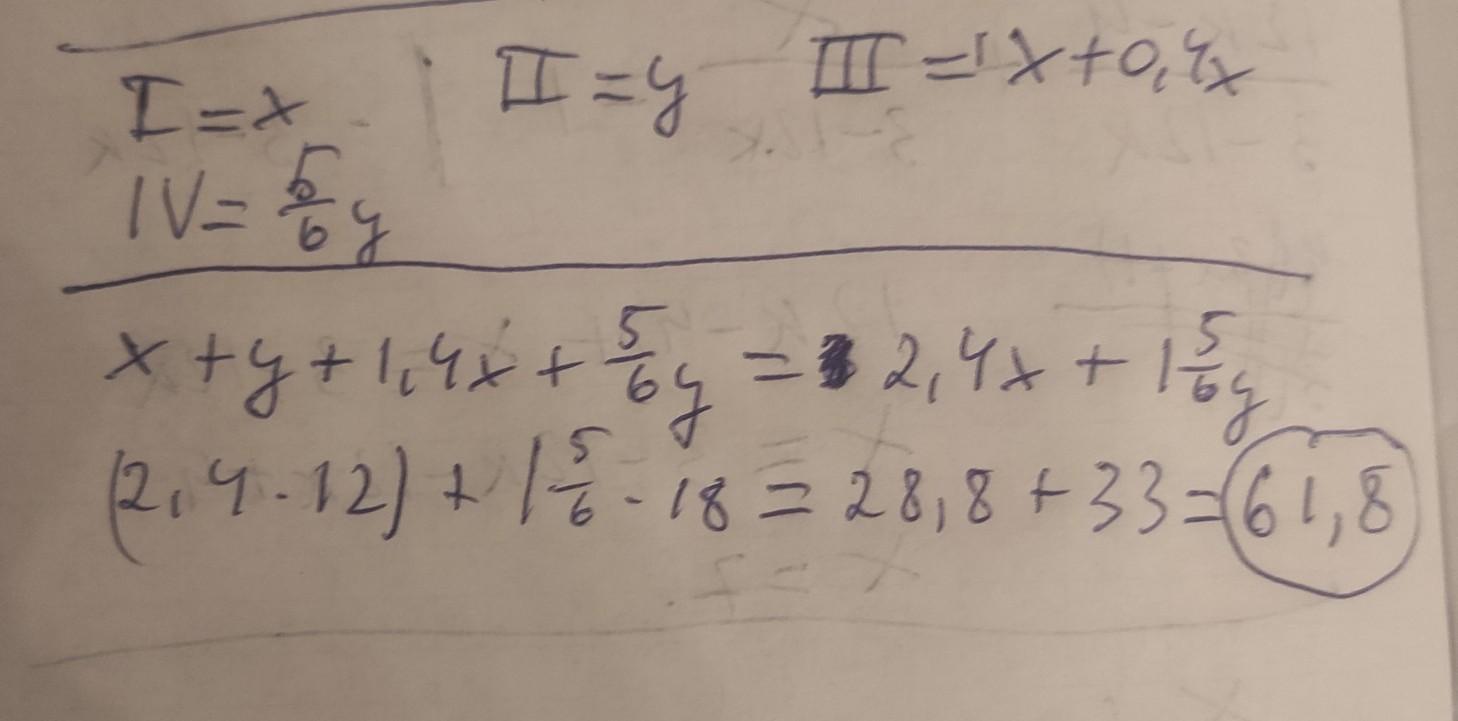 I = x II = y III = 1x + 0,4x
IV = 5/6 y
x + y + 1,4x + 5/6 y = 2,4x + 1 5/6 y
(2,4 · 12) + 1 5/6 · 18 = 28,8 + 33 = 61,8